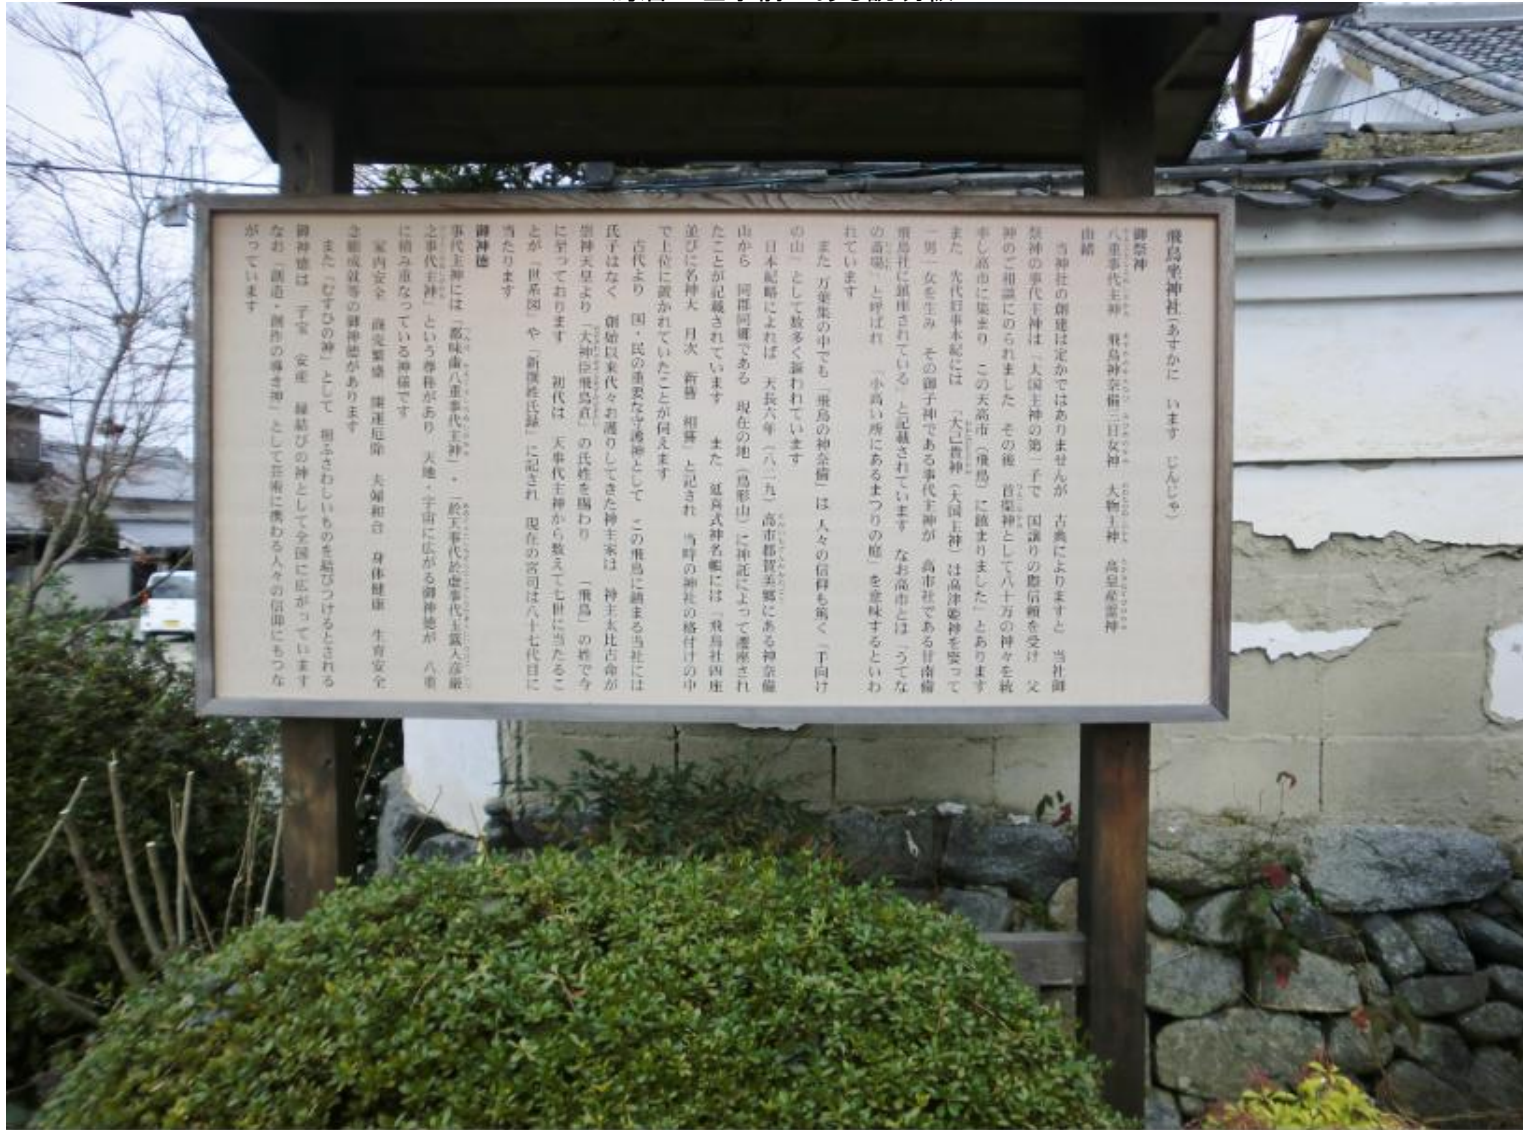 飛鳥坐神社(あすかに います じんじゃ)
御祭神
八重事代主神 飛鳥神奈備三日女神 大物主神 高皇産霊神
由緒
当神社の創建は定かではありませんが 古典によりますと 当社御
祭神の事代主神は「大国主神の第一子で 国譲りの際信頼を受け 父
神のご相談にのられました その後 首渠神として八十万の神々を統
率し高市に集まり この天高市(飛鳥)に鎮まりました」とあります
また 先代旧事本紀には 「大己貴神(大国主神)は高津姫神を娶って
一男一女を生み その御子神である事代主神が 高市社である甘南備
飛鳥社に鎮座されている」と記載されています なお高市とは「うてな
の斎場」と呼ばれ 「小高い所にあるまつりの庭」を意味するといわ
れています
また 万葉集の中でも「飛鳥の神奈備」は 人々の信仰も篤く「手向け
の山」として数多く謳われています
日本紀略によれば 天長六年(八二九)高市郡賀美郷にある神奈備
山から 同郡同郷である 現在の地(鳥形山)に神託によって遷座され
たことが記載されています また 延喜式神名帳には「飛鳥社四座
並びに名神大 月次 新嘗 相嘗」と記され 当時の神社の格付けの中
で上位に置かれていたことが伺えます
古代より 国・民の重要な守護神として この飛鳥に鎮まる当社には
氏子はなく 創始以来代々お護りしてきた神主家は 神主太比古命が
崇神天皇より「大神臣飛鳥直」の氏姓を賜わり 「飛鳥」の姓で今
に至っております 初代は 天事代主神から数えて七世に当たるこ
とが「世系図」や「新撰姓氏録」に記され 現在の宮司は八十七代目に
当たります
御神徳
事代主神には「都味歯八重事代主神」・「於天事代於虚事代玉籤入彦厳
之事代主神」という尊称があり 天地・宇宙に広がる御神徳が 八重
に積み重なっている神様です
家内安全 商売繁盛 開運厄除 夫婦和合 身体健康 生育安全
念願成就等の御神徳があります
また「むすひの神」として 相ふさわしいものを結びつけるとされる
御神徳は 子宝 安産 縁結びの神として全国に広がっています
なお「創造・創作の導き神」として芸術に携わる人々の信仰にもつな
がっています